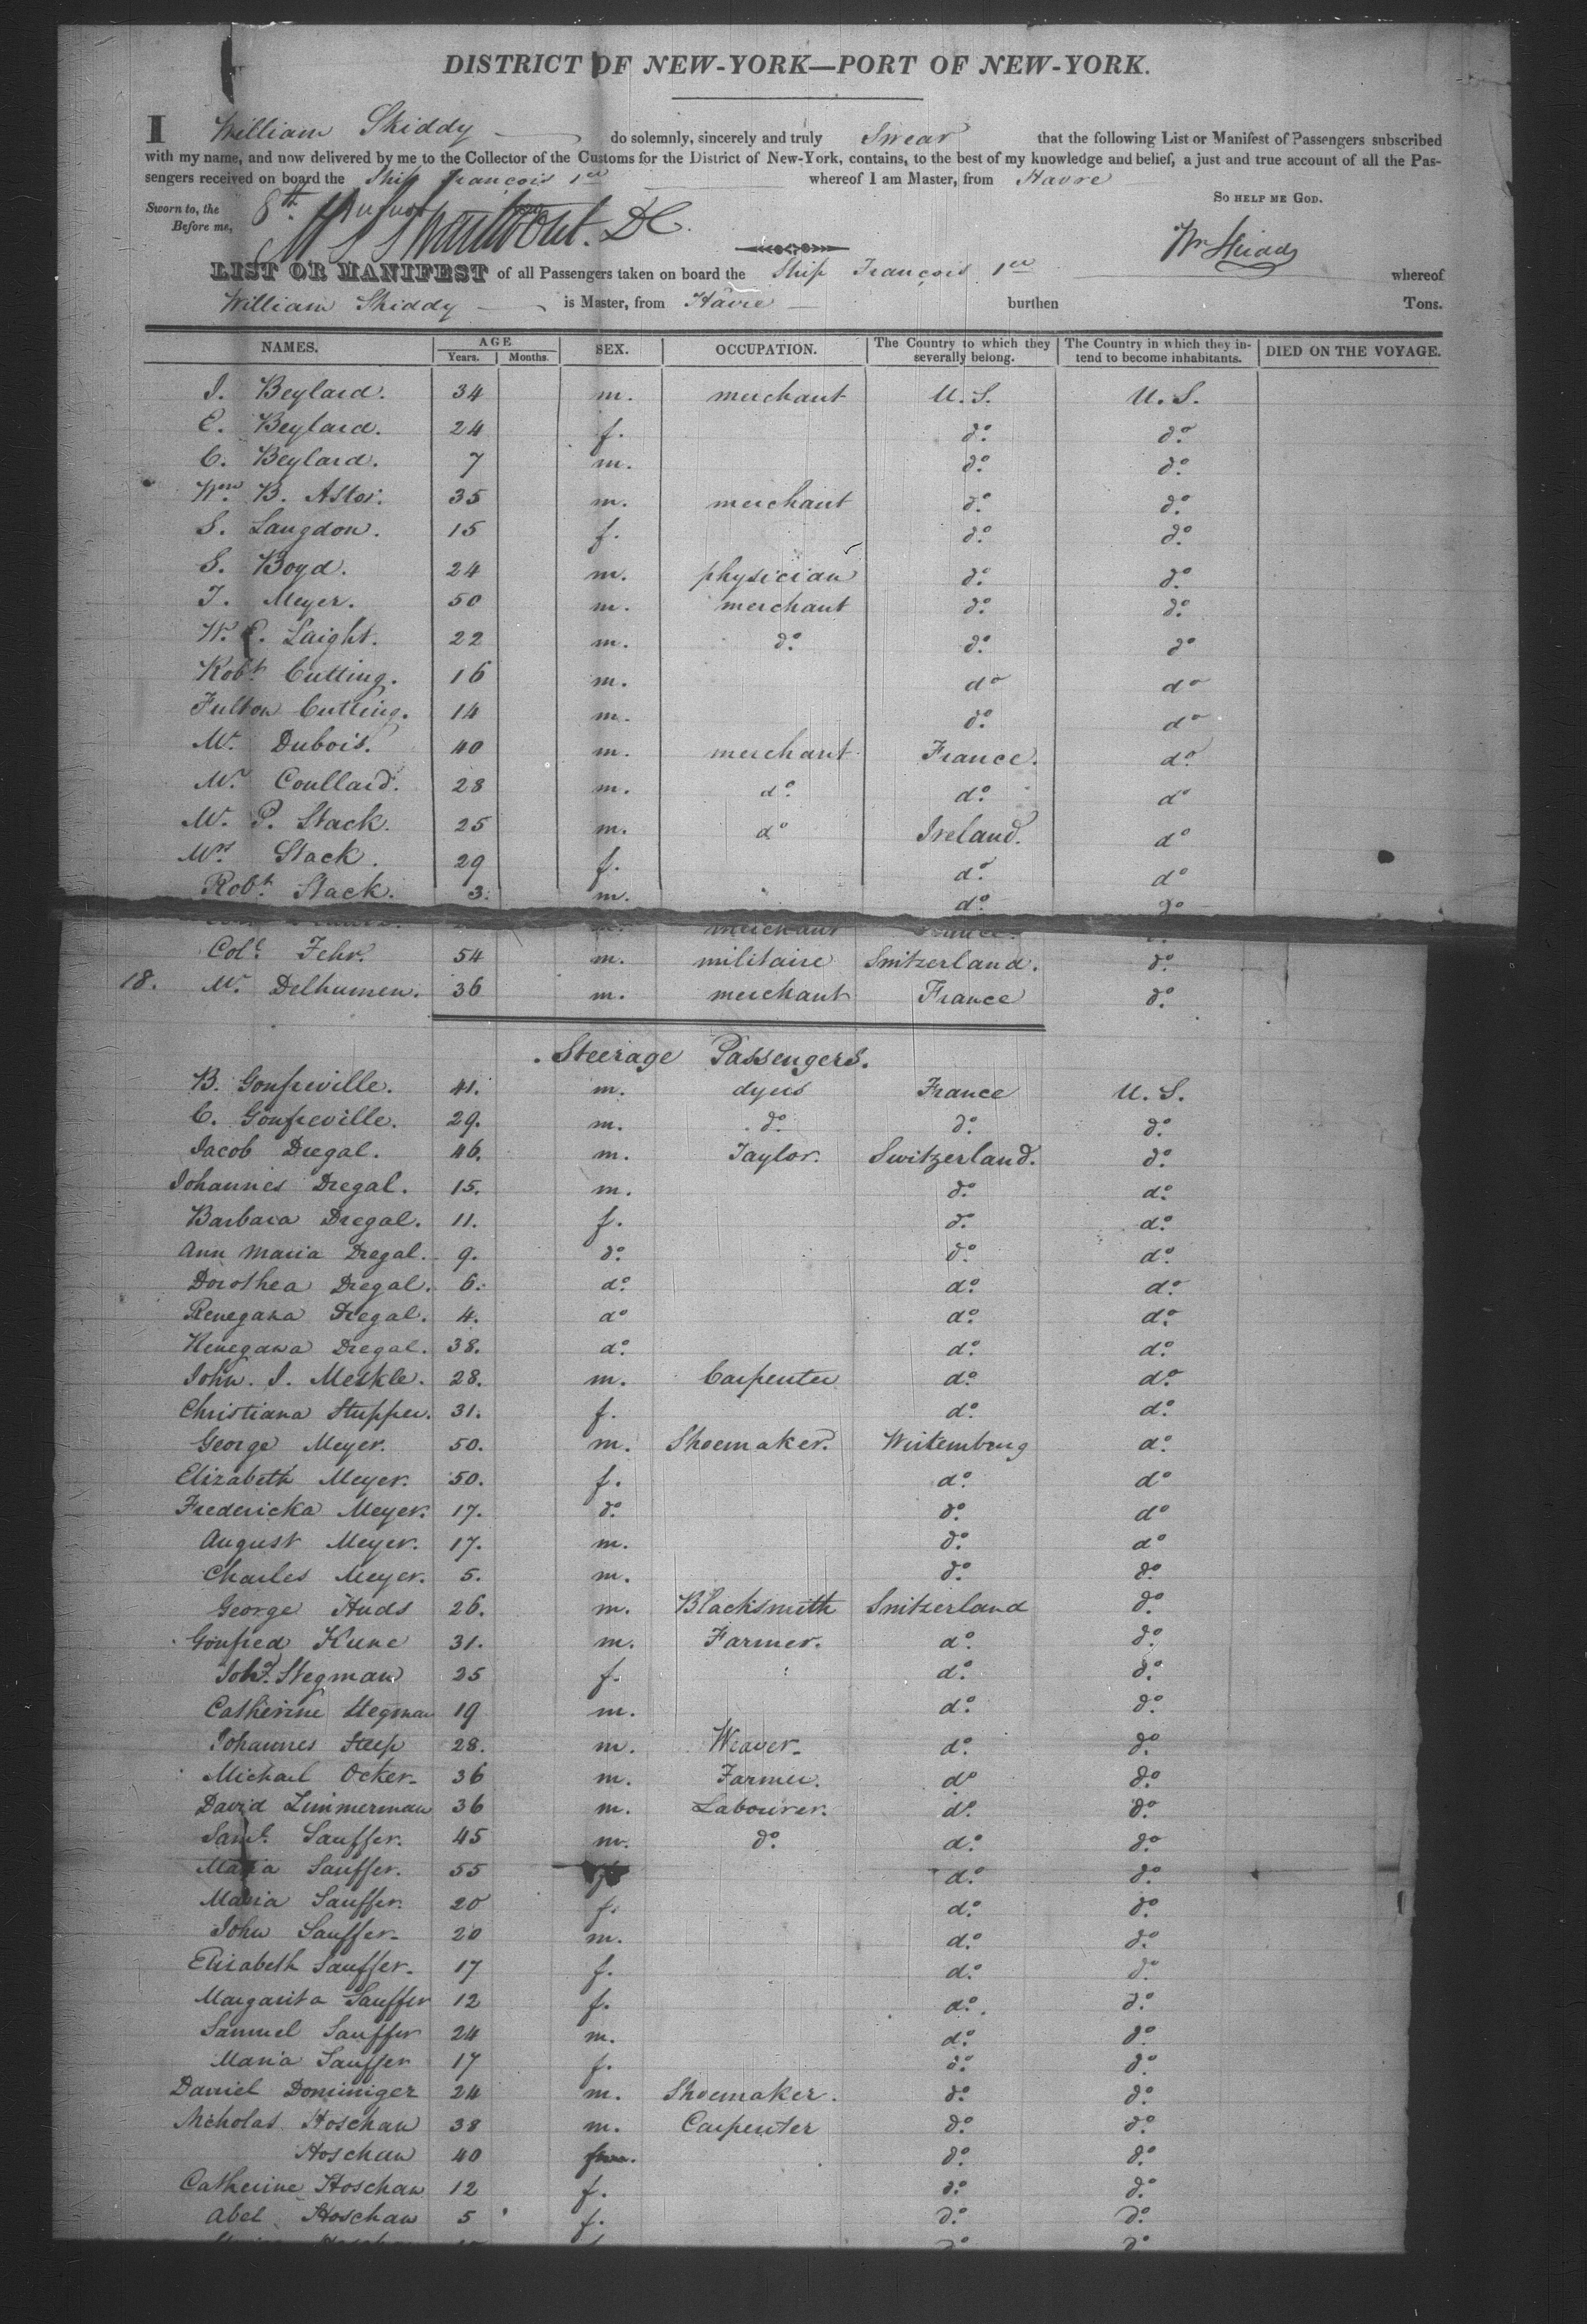 DISTRICT OF NEW-YORK—PORT OF NEW-YORK.
I William Skiddy do solemnly, sincerely and truly Swear that the following List or Manifest of Passengers subscribed
with my name, and now delivered by me to the Collector of the Customs for the District of New-York, contains, to the best of my knowledge and belief, a just and true account of all the Pas-
sengers received on board the Ship François 1er whereof I am Master, from Havre
So HELP ME GOD.
Sworn to, the 8th August
Before me,
Wm Skiddy
LIST OR MANIFEST of all Passengers taken on board the Ship François 1er whereof
William Skiddy is Master, from Havre burthen Tons.
NAMES. AGE Years. Months. SEX. OCCUPATION. The Country to which they severally belong. The Country in which they intend to become inhabitants. DIED ON THE VOYAGE.
I. Beylard. 34 m. merchant U.S. U.S.
E. Beylard. 24 f. do. do.
C. Beylard. 7 m. do. do.
Wm. B. Astor. 35 m. merchant do. do.
S. Langdon. 15 f. do. do.
S. Boyd. 24 m. physician do. do.
J. Meyer. 50 m. merchant do. do.
W. E. Laight. 22 m. do. do. do
Robt. Cutting. 16 m. do do
Fulton Cutting. 14 m. do. do
Mr. Dubois. 40 m. merchant France. do.
Mr. Coullard. 28 m. do. do. do
Mr. P. Stack. 25 m. do Ireland. do
Mrs. Stack. 29 f. do. do
Robt. Stack. 3. m. do. do
merchant France.
Col. Fehr. 54 m. militaire Switzerland. do.
18. Mr. Delhumen. 36 m. merchant France do.
Steerage Passengers.
B. Gonfreville. 41. m. dyers France U.S.
C. Gonfreville. 29. m. do. do. do.
Jacob Dregal. 46. m. Taylor. Switzerland. do.
Johannes Dregal. 15. m. do. do.
Barbara Dregal. 11. f. do. do.
Ann Maria Dregal. 9. do. do. do.
Dorothea Dregal. 6. do. do. do.
Renegana Dregal. 4. do do. do.
Henegana Dregal. 38. do. do. do.
John. I. Merkle. 28. m. Carpenter do. do.
Christiana Stupper. 31. f. do. do.
George Meyer. 50. m. Shoemaker. Wirtemberg do.
Elizabeth Meyer. 50. f. do. do
Fredericka Meyer. 17. do. do. do
August Meyer. 17. m. do. do
Charles Meyer. 5. m. do. do.
George Huds 26. m. Blacksmith Switzerland do.
Gonfred Kune 31. m. Farmer. do. do.
Stegman 25 f. do. do.
Catherine Stegman 19 m. do. do.
Johannes Steep 28. m. Weaver. do. do.
Michael Ocker. 36 m. Farmer. do do.
David Zimmerman 36 m. Labourer. do. do.
Saml. Sauffer. 45 m. do. do. do.
Maria Sauffer. 55 do. do.
Maria Sauffer. 20 f. do. do.
John Sauffer. 20 m. do. do.
Elizabeth Sauffer. 17 f. do. do.
Margarita Sauffer 12 f. do. do.
Samuel Sauffer 24 m. do. do.
Maria Sauffer 17 f. do. do.
Daniel Dominiger 24 m. Shoemaker. do. do.
Nicholas Hoschaw 38 m. Carpenter do. do.
Hoschaw 40 do. do.
Catherine Hoschaw 12 f. do. do.
Abel Hoschaw 5 f. do. do.